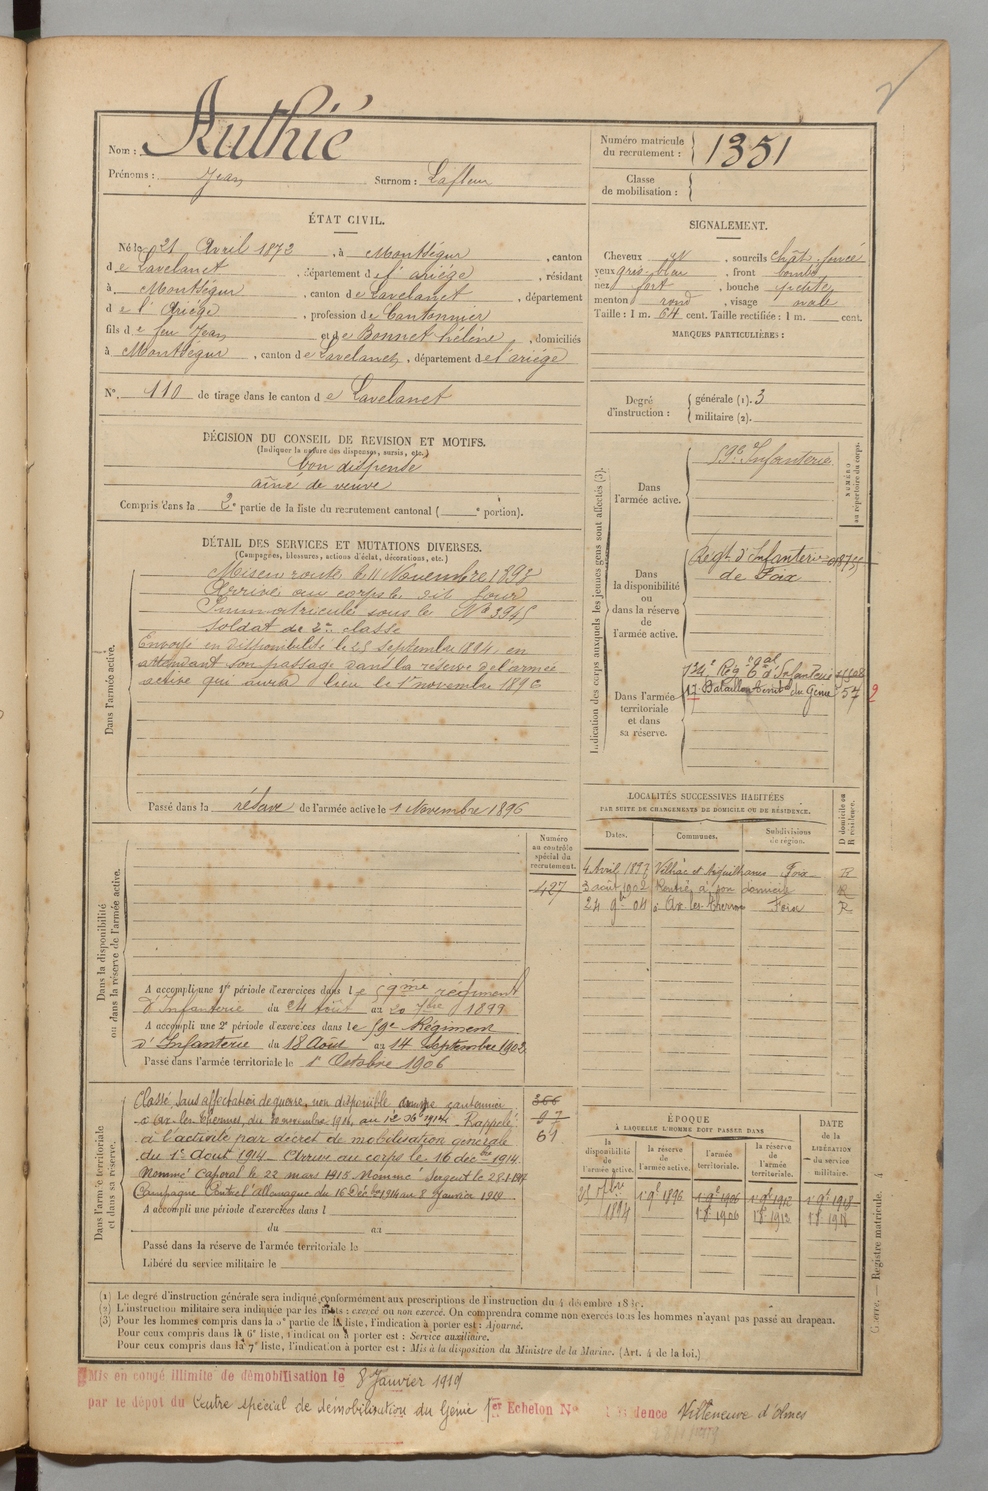 2
Nom : Authié
Prénoms : Jean Surnom : Lafleur
Numéro matricule du recrutement : 1351
Classe de mobilisation :
ÉTAT CIVIL.
Né le 21 Avril 1872, à Montségur, canton
de Lavelanet, département de l'ariége, résidant
à Montségur, canton de Lavelanet, département
de l'Ariége, profession de Cantonnier
fils de feu Jean et de Bonnet hélène, domiciliés
à Montségur, canton de Lavelanet, département de l'ariége
N° 110 de tirage dans le canton de Lavelanet
SIGNALEMENT.
Cheveux sourcils chât. foncé
yeux gris bleu, front bombé
nez fort, bouche petite
menton rond, visage ovale
Taille : 1 m. 64 cent. Taille rectifiée : 1 m. cent.
MARQUES PARTICULIÈRES :
Degré d'instruction : générale (1). 3
militaire (2).
DÉCISION DU CONSEIL DE REVISION ET MOTIFS.
(Indiquer la nature des dispenses, sursis, etc.)
bon dispensé
aîné de veuve
Compris dans la 2e partie de la liste du recrutement cantonal ( e portion).
DÉTAIL DES SERVICES ET MUTATIONS DIVERSES.
(Campagnes, blessures, actions d'éclat, décorations, etc.)
Dans l'armée active.
Mis en route le 11 Novembre 1893
Arrivé au corps le dit jour
Immatriculé sous le N° 3945
soldat de 2e classe
Envoyé en disponibilité le 25 septembre 1894, en
attendant son passage dans la réserve de l'armée
active qui aura lieu le 1er novembre 1896
Passé dans la réserve de l'armée active le 1 Novembre 1896
Indication des corps auxquels les jeunes gens sont affectés (3).
NUMÉRO au répertoire du corps.
Dans l'armée active.
59e Infanterie
Dans la disponibilité ou dans la réserve de l'armée active.
Regt d'Infanterie
de Foix
Dans l'armée territoriale et dans sa réserve.
134e Rég t al d'Infanterie
17 Bataillon Territ al du Génie 57 2
LOCALITÉS SUCCESSIVES HABITÉES
PAR SUITE DE CHANGEMENTS DE DOMICILE OU DE RÉSIDENCE.
Dates. Communes. Subdivisions de région. D domicile ou R résidence.
4 Avril 1897 Foix R
3 août 1902 Rentré à son domicile R
24 9bre 04 à Ax les Thermes Foix R
Dans la disponibilité ou dans la réserve de l'armée active.
Numéro au contrôle spécial du recrutement.
427
A accompli une 1re période d'exercices dans le 59me régiment
d'Infanterie du 24 Août au 20 7bre 1899
A accompli une 2e période d'exercices dans le 59e Régiment
d'Infanterie du 18 Août au 14 septembre 1902
Passé dans l'armée territoriale le 1er Octobre 1906
Dans l'armée territoriale et dans sa réserve.
Classé, sans affectation de guerre, non disponible comme cantonnier
à Ax les Thermes, du 20 novembre 1914, au 15 Xb 1914. Rappelé
à l'activité par décret de mobilisation générale
du 1er Aout 1914. Arrivé au corps le 16 décbre 1914.
Nommé Caporal le 22 mars 1915 Nommé Sergent le
Campagne Contre l'Allemagne du 16 décbre 1914 au 8 Janvier 1919
366
97
61
A accompli une période d'exercices dans l
du au
Passé dans la réserve de l'armée territoriale le
Libéré du service militaire le
ÉPOQUE
À LAQUELLE L'HOMME DOIT PASSER DANS
la disponibilité de l'armée active. la réserve de l'armée active. l'armée territoriale. la réserve de l'armée territoriale. DATE de la LIBÉRATION du service militaire.
25 7bre 1894 1 9bre 1896 1 9bre 1906 1 9bre 1912 1 9bre 1918
1 8bre 1906 1 8bre 1912 1 8bre 1918
(1) Le degré d'instruction générale sera indiqué conformément aux prescriptions de l'instruction du 4 décembre 1889.
(2) L'instruction militaire sera indiquée par les mots : exercé ou non exercé. On comprendra comme non exercés tous les hommes n'ayant pas passé au drapeau.
(3) Pour les hommes compris dans la 5e partie de la liste, l'indication à porter est : Ajourné.
Pour ceux compris dans la 6e liste, l'indication à porter est : Service auxiliaire.
Pour ceux compris dans la 7e liste, l'indication à porter est : Mis à la disposition du Ministre de la Marine. (Art. 4 de la loi.)
Guerre. — Registre matricule. 4
Mis en congé illimité de démobilisation le 8 Janvier 1919
par le dépôt du Centre spécial de démobilisation du Génie 1er Echelon N° Résidence Villeneuve d'Olmes